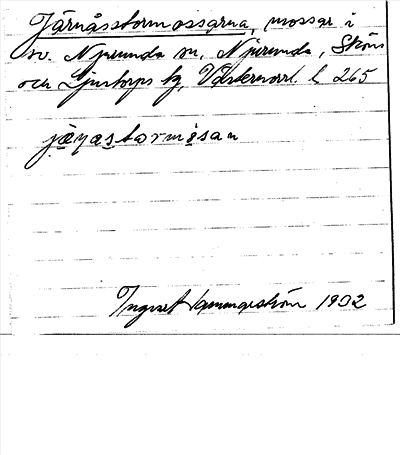 Järnåsstormossarna, mossar i
sv. Njurunda sn, Njurunda, Sköns
och Ljustorps tg, Västernorrl. l. 265
jæɳastormosan
Ingvar Hammarström 1932